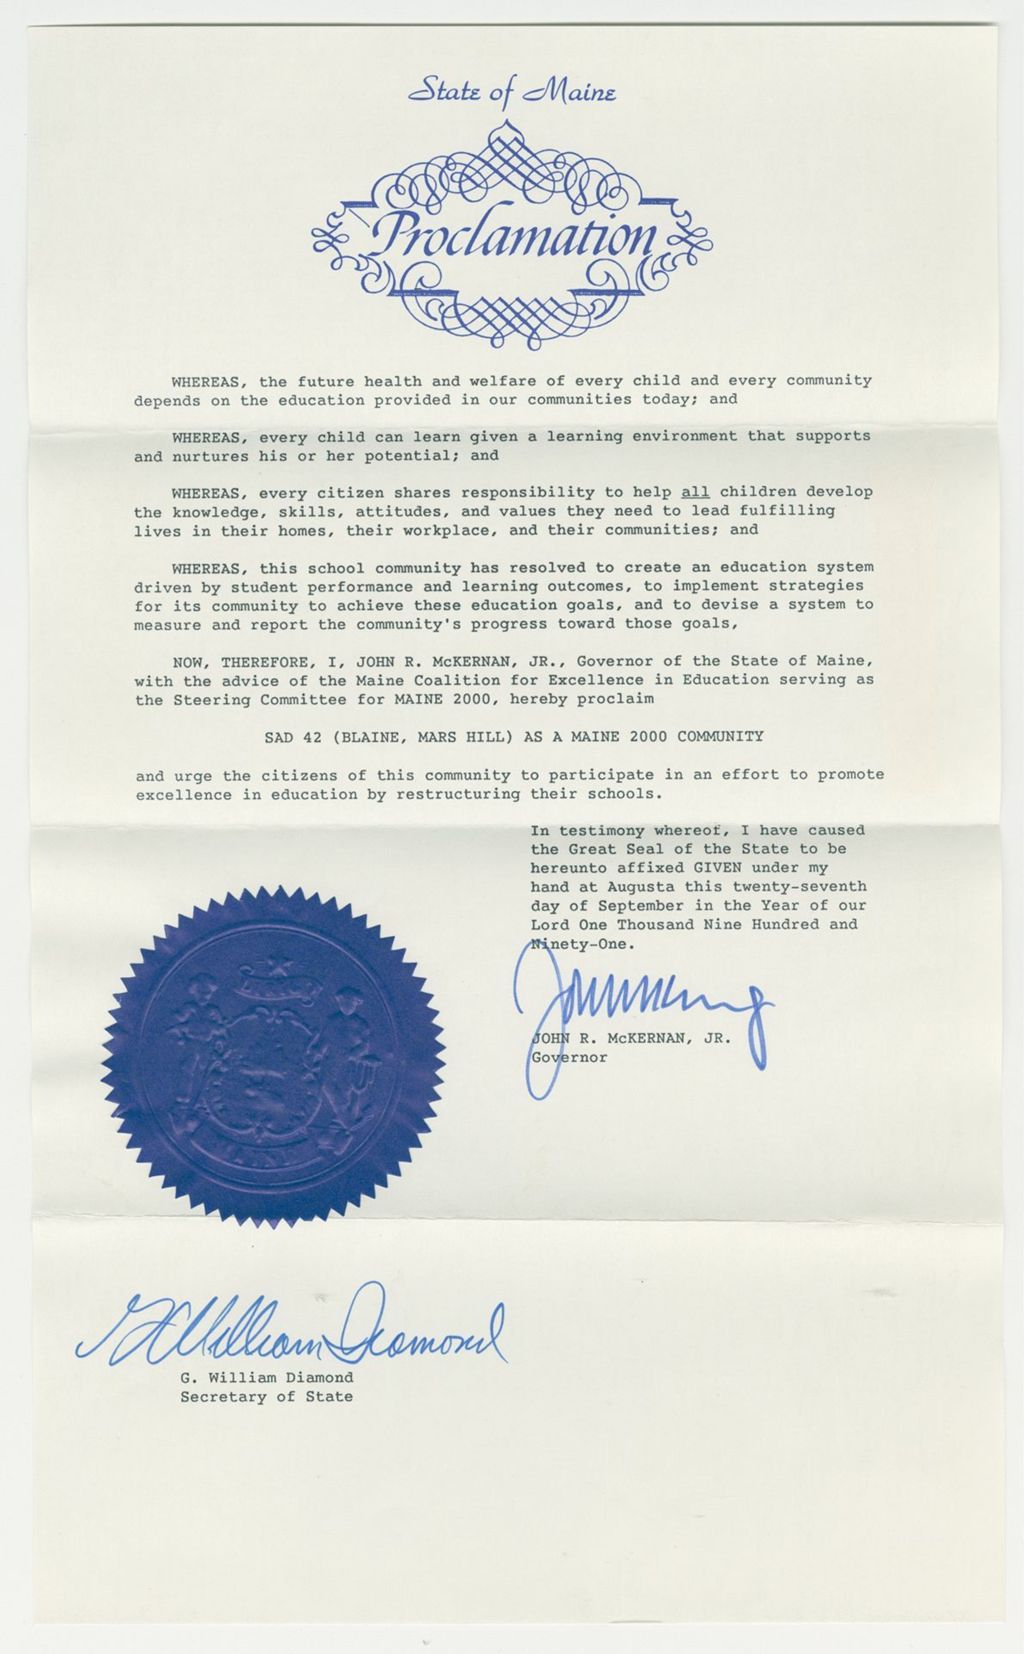 State of Maine
Proclamation
WHEREAS, the future health and welfare of every child and every community
depends on the education provided in our communities today; and
WHEREAS, every child can learn given a learning environment that supports
and nurtures his or her potential; and
WHEREAS, every citizen shares responsibility to help all children develop
the knowledge, skills, attitudes, and values they need to lead fulfilling
lives in their homes, their workplace, and their communities; and
WHEREAS, this school community has resolved to create an education system
driven by student performance and learning outcomes, to implement strategies
for its community to achieve these education goals, and to devise a system to
measure and report the community's progress toward those goals,
NOW, THEREFORE, I, JOHN R. McKERNAN, JR., Governor of the State of Maine,
with the advice of the Maine Coalition for Excellence in Education serving as
the Steering Committee for MAINE 2000, hereby proclaim
SAD 42 (BLAINE, MARS HILL) AS A MAINE 2000 COMMUNITY
and urge the citizens of this community to participate in an effort to promote
excellence in education by restructuring their schools.
In testimony whereof, I have caused
the Great Seal of the State to be
hereunto affixed GIVEN under my
hand at Augusta this twenty-seventh
day of September in the Year of our
Lord One Thousand Nine Hundred and
Ninety-One.
JOHN R. McKERNAN, JR.
Governor
MAINE
G William Diamond
G. William Diamond
Secretary of State